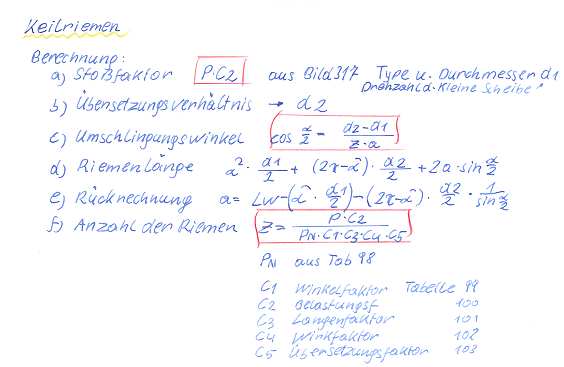 Keilriemen
Berechnung:
a) Stoßfaktor P·C2 aus Bild 317 Type u. Durchmesser d1
Drehzahl d. kleine Scheibe
b) Übersetzungsverhältnis → d2
c) Umschlingungswinkel cos α/2 = (d2-d1)/(2·a)
d) Riemenlänge α̂ · d1/2 + (2π-α̂) · d2/2 + 2a·sin α/2
e) Rücknechnung a = Lw-(α̂ · d1/2)-(2π-α̂) · d2/2 · 1/(sin α/2)
f) Anzahl der Riemen z = (P·C2)/(PN·C1·C3·C4·C5)
PN aus Tab 98
C1 Winkelfaktor Tabelle 99
C2 Belastungsf 100
C3 Langenfaktor 101
C4 Winkfaktor 102
C5 Übersetzungsfaktor 103